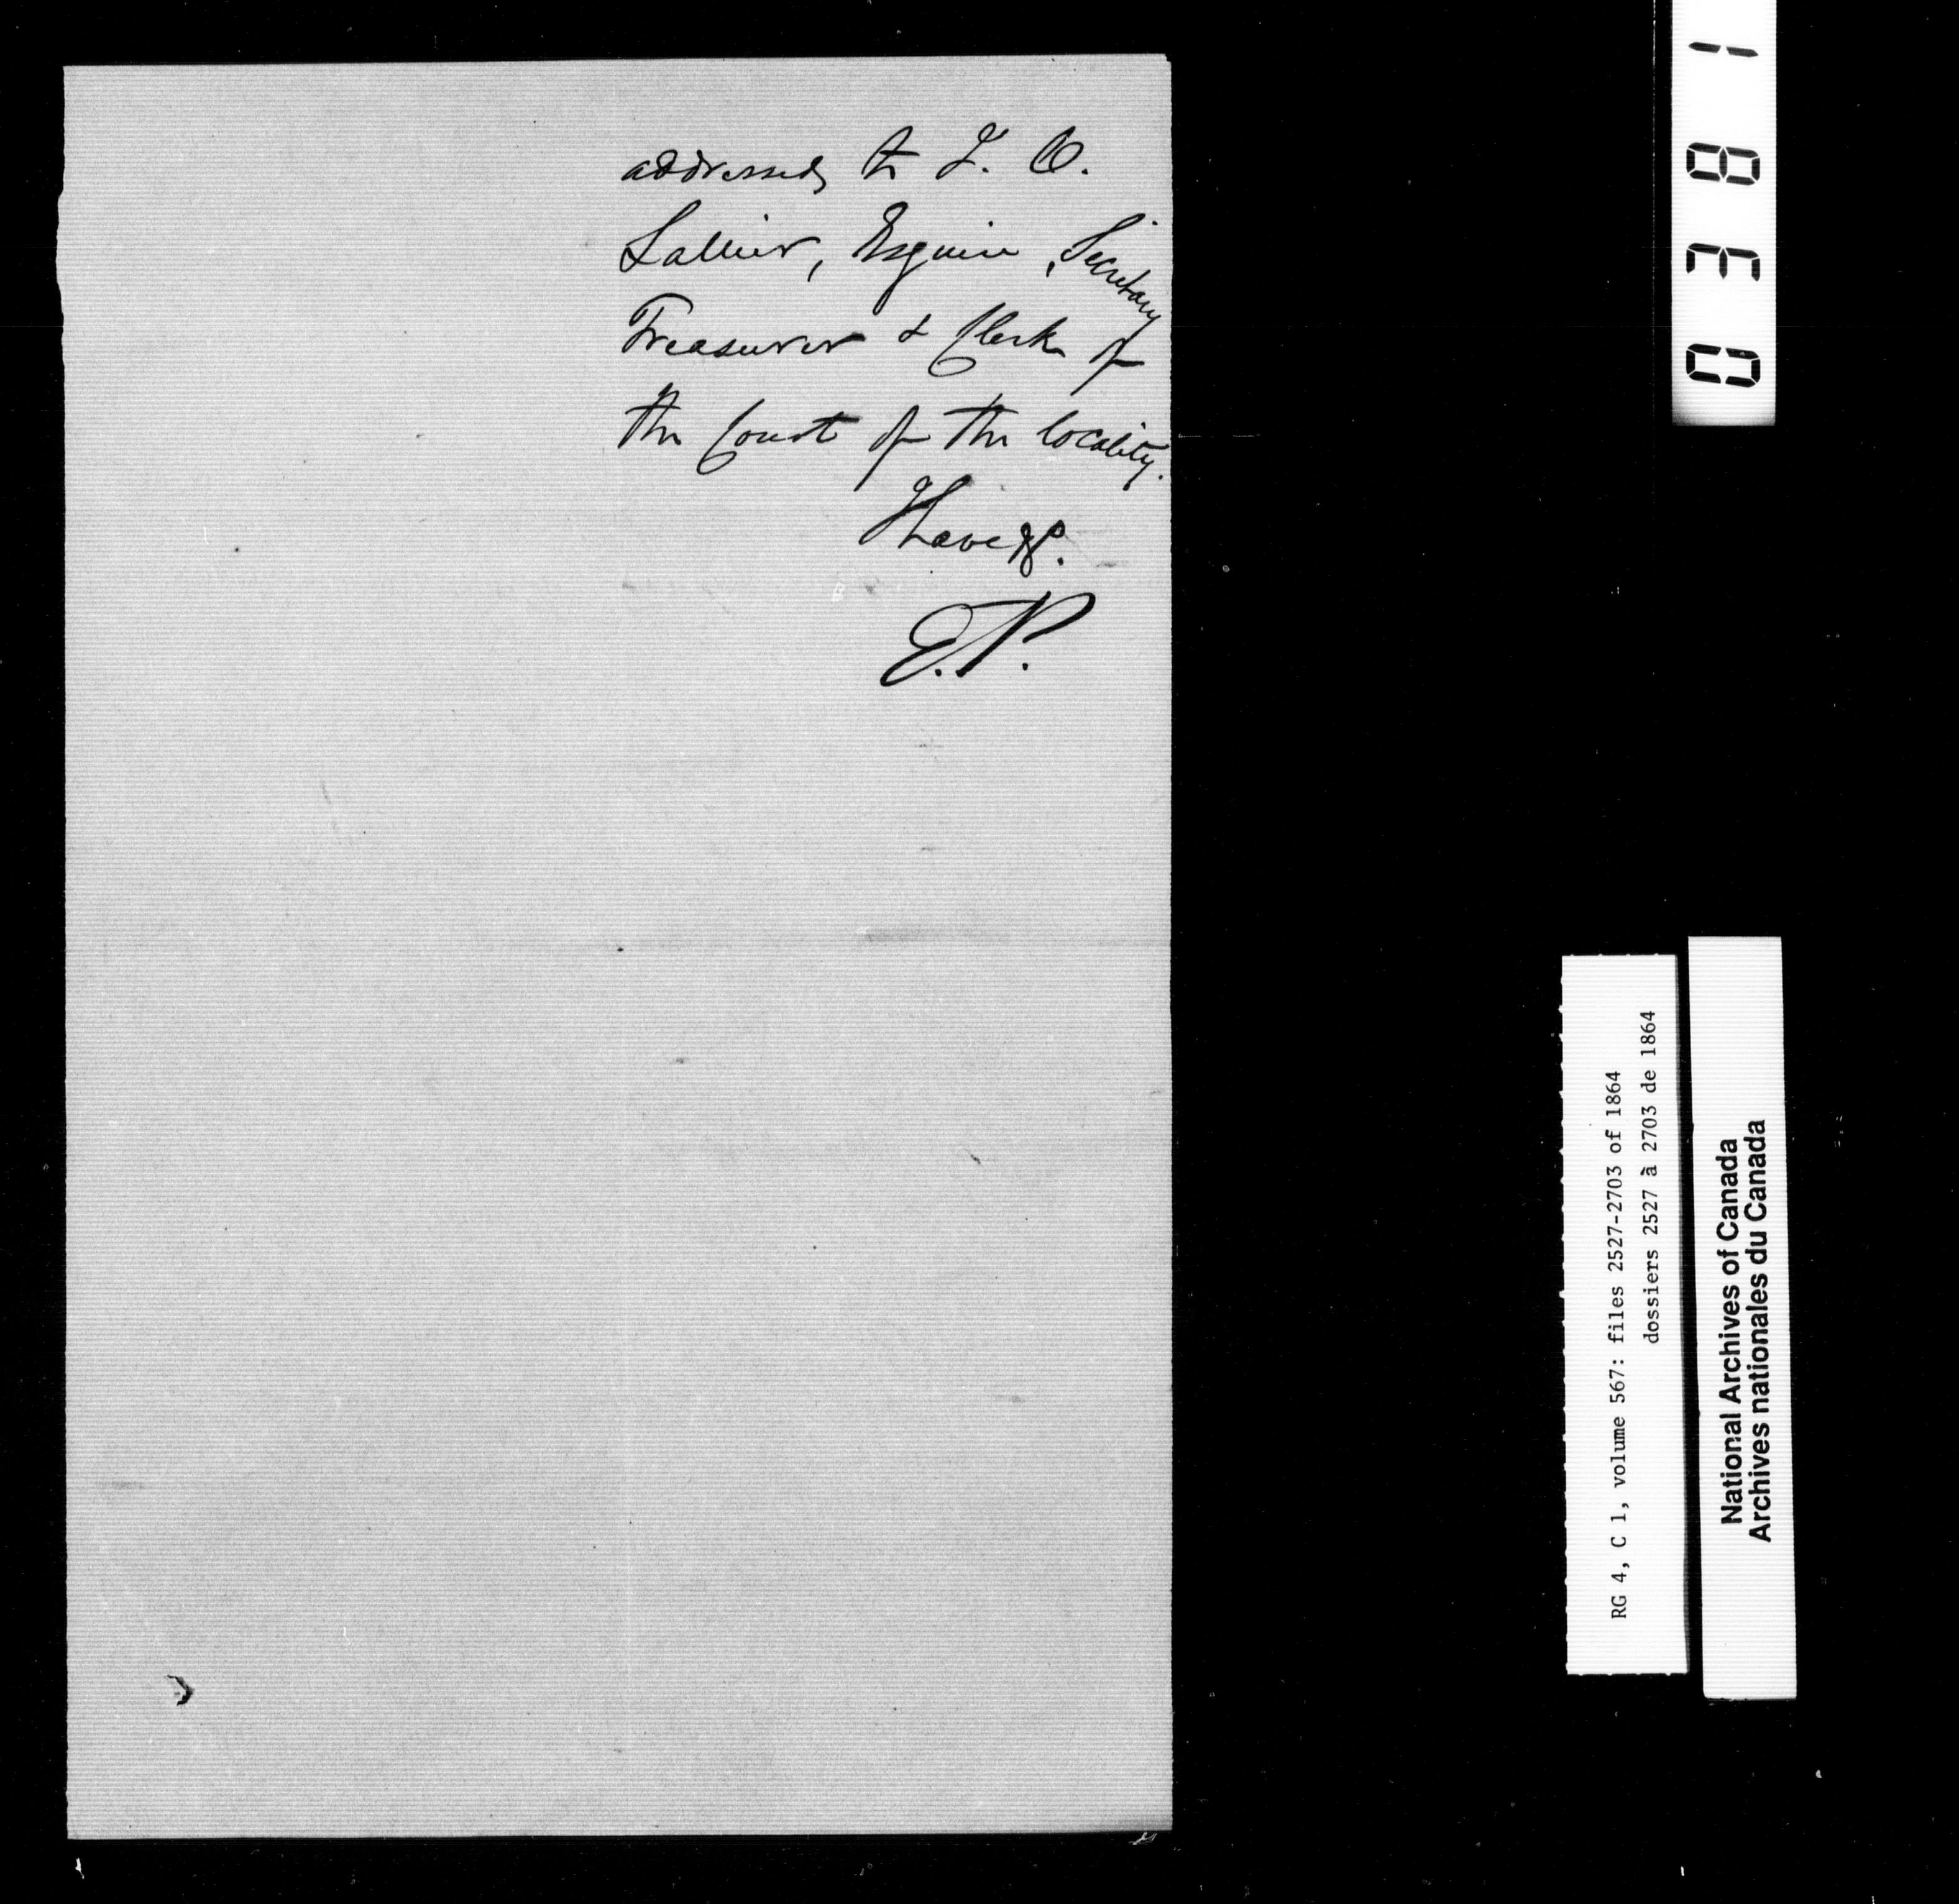 addressed, to L. O.
Lallier, Esquire, Secretary
Treasurer & Clerk of
the Court of the locality.
I have &c.
E. P.
0381
RG 4, C 1, volume 567: files 2527-2703 of 1864
dossiers 2527 à 2703 de 1864
National Archives of Canada
Archives nationales du Canada